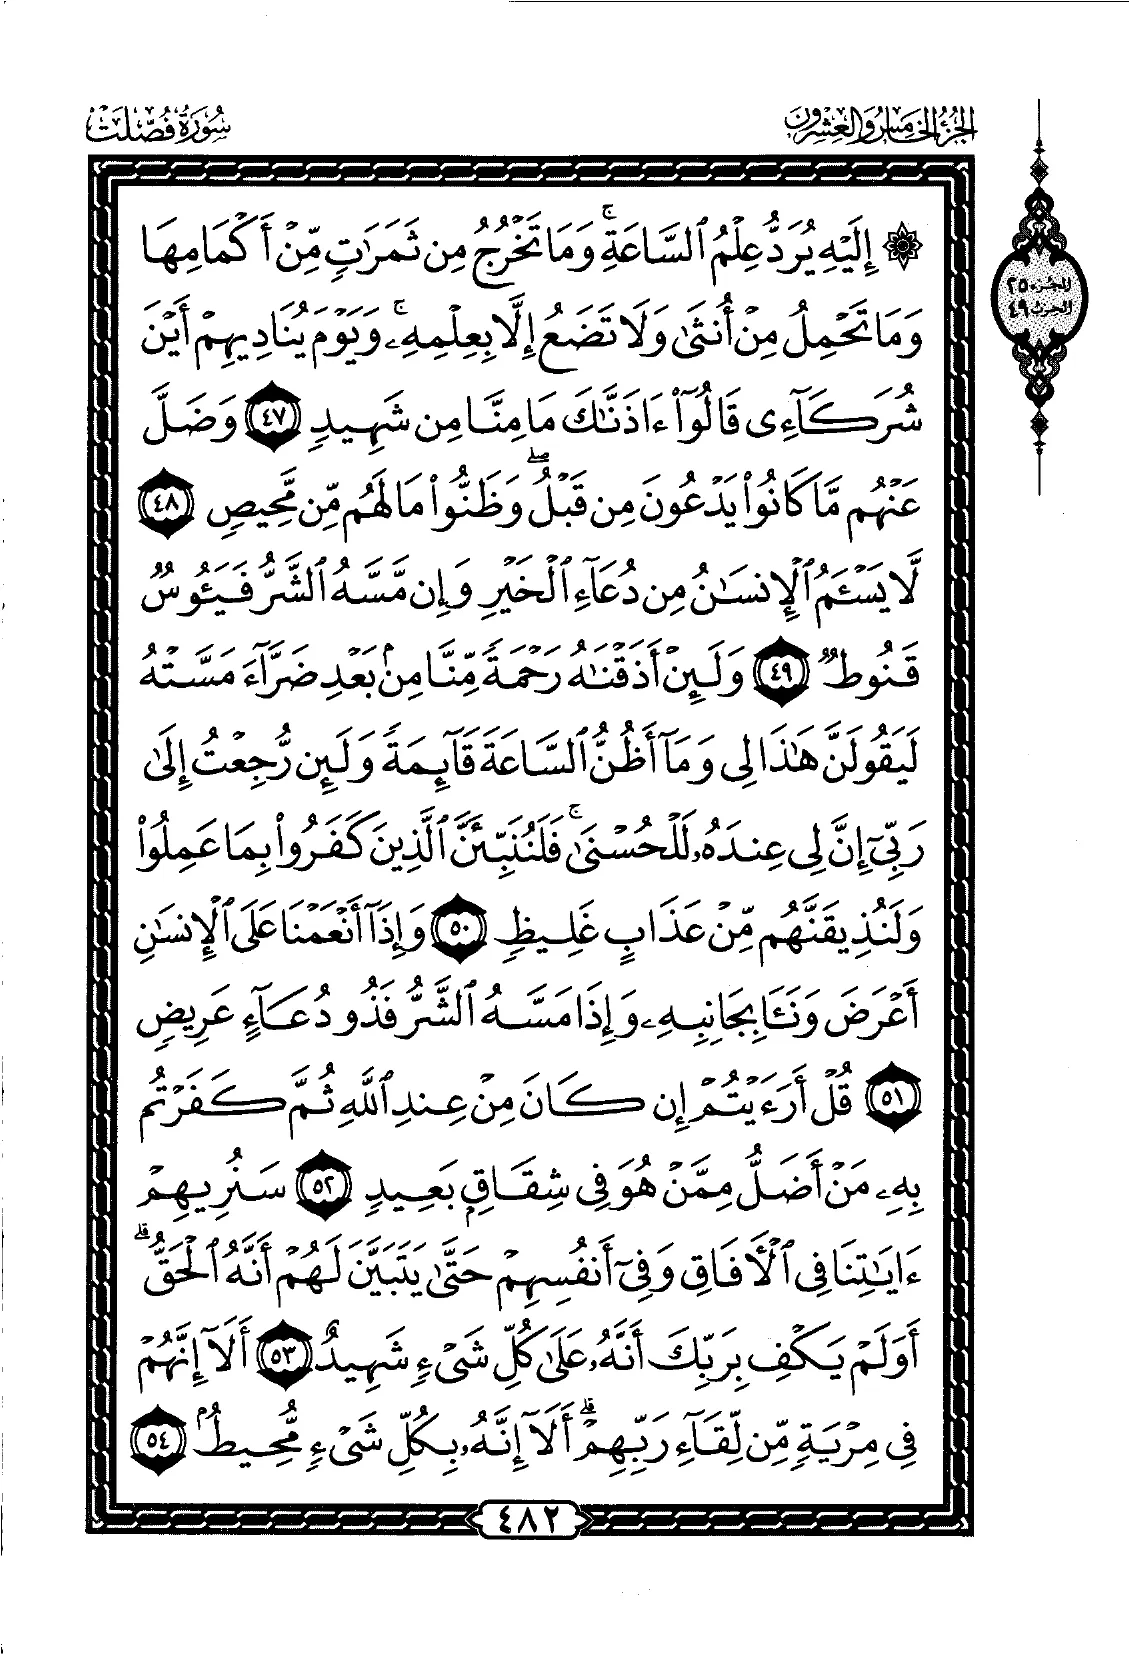 الجزء الخامس والعشرون
سورة فصلت
الجزء ٢٥
الحزب ٤٩
۞ إِلَيْهِ يُرَدُّ عِلْمُ ٱلسَّاعَةِۚ وَمَا تَخْرُجُ مِن ثَمَرَٰتٍ مِّنْ أَكْمَامِهَا
وَمَا تَحْمِلُ مِنْ أُنثَىٰ وَلَا تَضَعُ إِلَّا بِعِلْمِهِۦۚ وَيَوْمَ يُنَادِيهِمْ أَيْنَ
شُرَكَآءِى قَالُوٓا۟ ءَاذَنَّٰكَ مَا مِنَّا مِن شَهِيدٍ ٤٧ وَضَلَّ
عَنْهُم مَّا كَانُوا۟ يَدْعُونَ مِن قَبْلُۖ وَظَنُّوا۟ مَا لَهُم مِّن مَّحِيصٍ ٤٨
لَّا يَسْـَٔمُ ٱلْإِنسَٰنُ مِن دُعَآءِ ٱلْخَيْرِ وَإِن مَّسَّهُ ٱلشَّرُّ فَيَـُٔوسٌ
قَنُوطٌ ٤٩ وَلَئِنْ أَذَقْنَٰهُ رَحْمَةً مِّنَّا مِنۢ بَعْدِ ضَرَّآءَ مَسَّتْهُ
لَيَقُولَنَّ هَٰذَا لِى وَمَآ أَظُنُّ ٱلسَّاعَةَ قَآئِمَةً وَلَئِن رُّجِعْتُ إِلَىٰ
رَبِّىٓ إِنَّ لِى عِندَهُۥ لَلْحُسْنَىٰۚ فَلَنُنَبِّئَنَّ ٱلَّذِينَ كَفَرُوا۟ بِمَا عَمِلُوا۟
وَلَنُذِيقَنَّهُم مِّنْ عَذَابٍ غَلِيظٍ ٥٠ وَإِذَآ أَنْعَمْنَا عَلَى ٱلْإِنسَٰنِ
أَعْرَضَ وَنَـَٔا بِجَانِبِهِۦ وَإِذَا مَسَّهُ ٱلشَّرُّ فَذُو دُعَآءٍ عَرِيضٍ
٥١ قُلْ أَرَءَيْتُمْ إِن كَانَ مِنْ عِندِ ٱللَّهِ ثُمَّ كَفَرْتُم
بِهِۦ مَنْ أَضَلُّ مِمَّنْ هُوَ فِى شِقَاقٍۭ بَعِيدٍ ٥٢ سَنُرِيهِمْ
ءَايَٰتِنَا فِى ٱلْـَٔافَاقِ وَفِىٓ أَنفُسِهِمْ حَتَّىٰ يَتَبَيَّنَ لَهُمْ أَنَّهُ ٱلْحَقُّۗ
أَوَلَمْ يَكْفِ بِرَبِّكَ أَنَّهُۥ عَلَىٰ كُلِّ شَىْءٍ شَهِيدٌ ٥٣ أَلَآ إِنَّهُمْ
فِى مِرْيَةٍ مِّن لِّقَآءِ رَبِّهِمْۗ أَلَآ إِنَّهُۥ بِكُلِّ شَىْءٍ مُّحِيطٌۢ ٥٤
٤٨٢